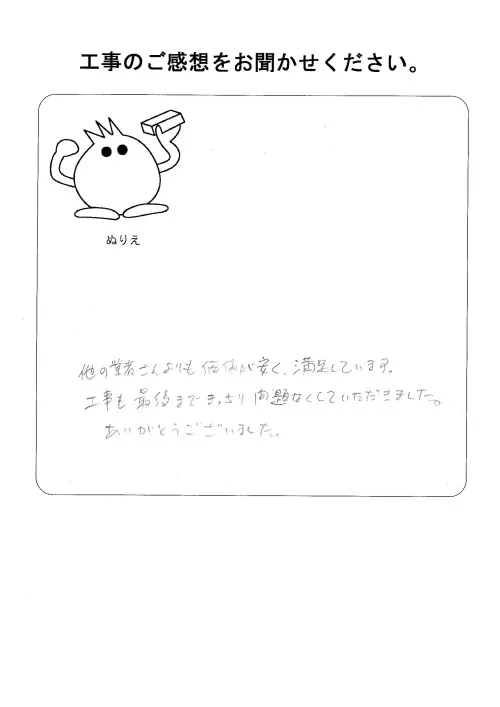 工事のご感想をお聞かせください。
ぬりえ
他の業者さんよりも価格が安く、満足しています。
工事も最後まできっちり問題なくしていただきました。
ありがとうございました。